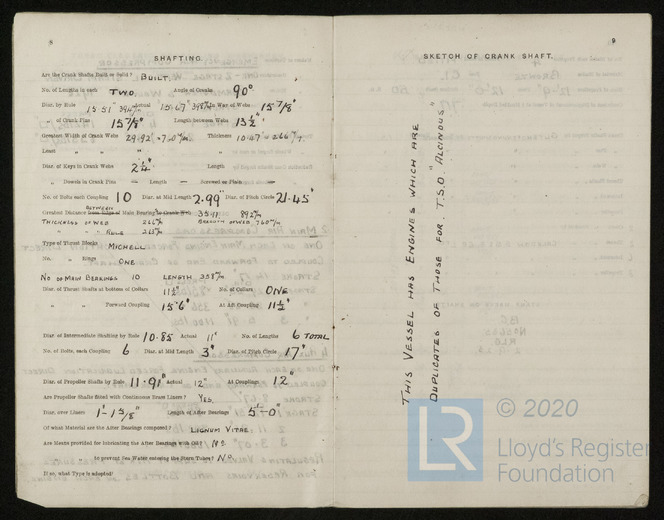 8
SHAFTING.
Are the Crank Shafts Built or Solid? BUILT.
No. of Lengths in each TWO. Angle of Cranks 90°
Diar. by Rule 15.51" 394 m/m Actual 15.67" 398 m/m In Way of Webs 15 7/8"
„ of Crank Pins 15 7/8" Length between Webs 13 1/2"
Greatest Width of Crank Webs 29.92" = 760 m/m Thickness 10.47" = 266 m/m
Least „ „ „
Diar. of Keys in Crank Webs 2 1/4" Length
„ Dowels in Crank Pins — Length — Screwed or Plain —
No. of Bolts each Coupling 10 Diar. at Mid Length 2.99" Diar. of Pitch Circle 21.45"
Greatest Distance BETWEEN Main Bearing 35.11" 892 m/m
THICKNESS OF WEB 266 m/m BREADTH OF WEB, 760 m/m
„ „ „ RULE
Type of Thrust Blocks MICHELL
No. „ Rings ONE
NO OF MAIN BEARINGS 10 LENGTH 358 m/m
Diar. of Thrust Shafts at bottom of Collars 11 1/2" No. of Collars ONE
„ „ Forward Coupling 15.6" At Aft Coupling 11 1/2"
Diar. of Intermediate Shafting by Rule 10.85 Actual 11" No. of Lengths 6 TOTAL
No. of Bolts, each Coupling 6 Diar. at Mid Length 3" Diar. of Pitch Circle 17"
Diar. of Propeller Shafts by Rule 11.91" Actual 12" At Couplings 12"
Are Propeller Shafts fitted with Continuous Brass Liners? YES.
Diar. over Liners 1'-1 5/8" Length of After Bearings 5'-0"
Of what Material are the After Bearings composed? LIGNUM VITAE.
Are Means provided for lubricating the After Bearings with Oil? No.
„ „ to prevent Sea Water entering the Stern Tubes? No.
If so, what Type is adopted?
9
SKETCH OF CRANK SHAFT.
THIS VESSEL HAS ENGINES WHICH ARE
DUPLICATES OF THOSE FOR T.S.O "ALCINOUS"
LR
© 2020
Lloyd's Register
Foundation